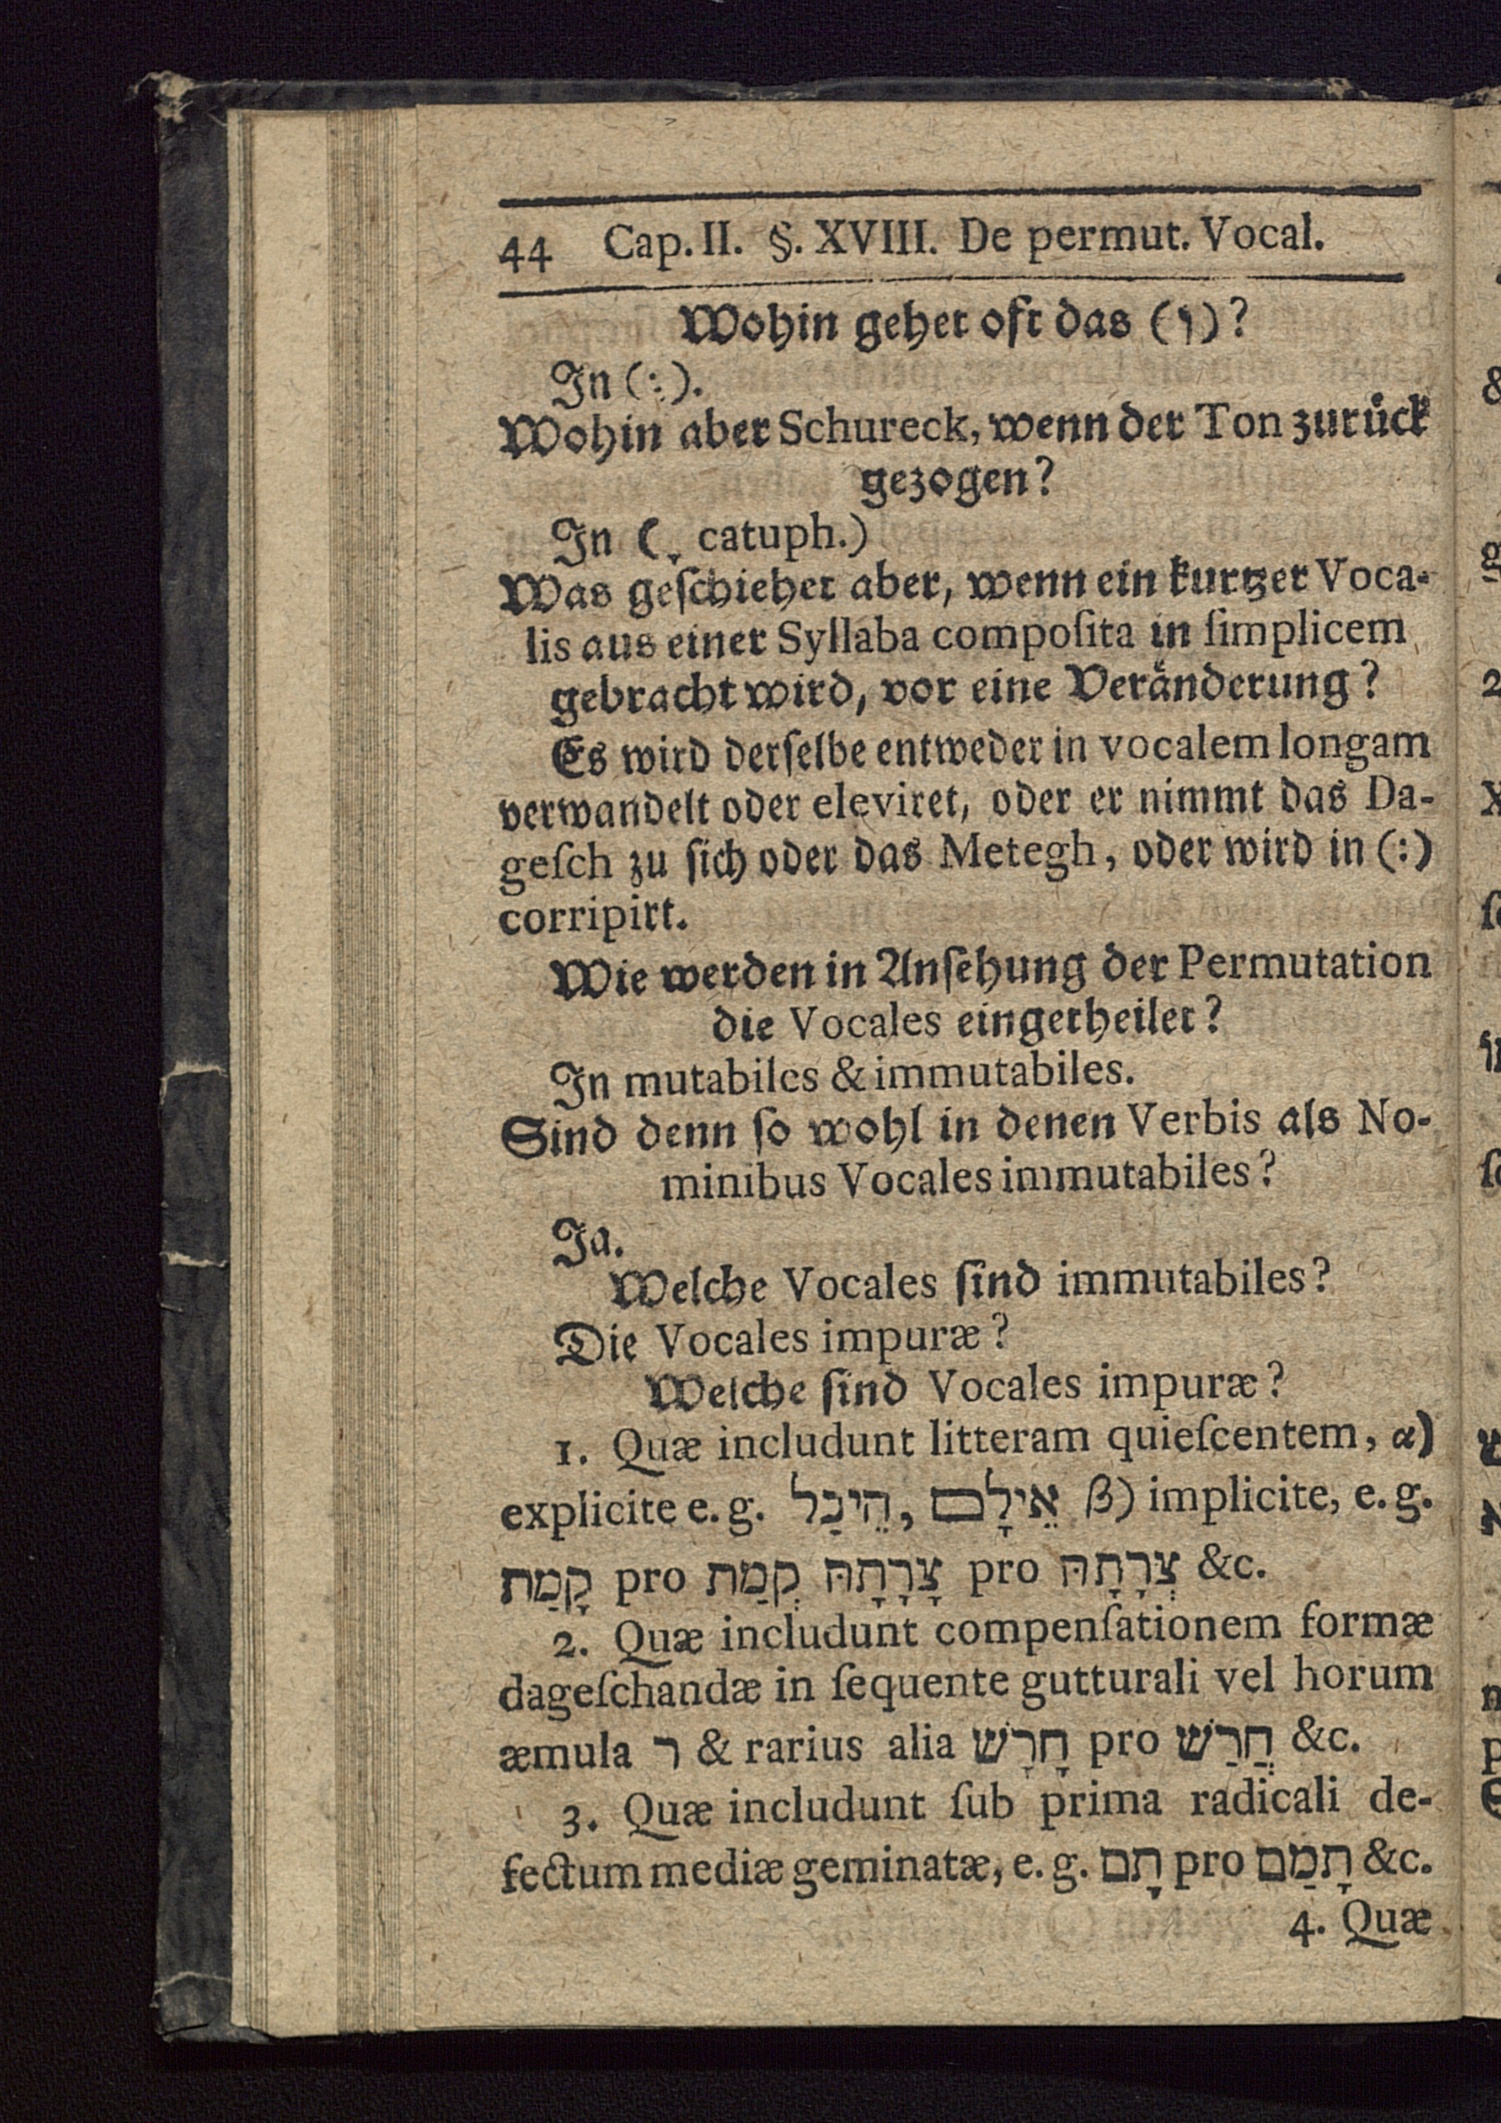 44 Cap. II. §. XVIII. De permut. Vocal.
Wohin gehet oft das (וֹ)?
In (:).
Wohin aber Schureck, wenn der Ton zurück
gezogen?
In (ָ catuph.)
Was geſchiehet aber, wenn ein kurtzer Voca-
lis aus einer Syllaba compoſita in ſimplicem
gebracht wird, vor eine Veränderung?
Es wird derſelbe entweder in vocalem longam
verwandelt oder eleviret, oder er nimmt das Da-
geſch zu ſich oder das Metegh, oder wird in (:)
corripirt.
Wie werden in Anſehung der Permutation
die Vocales eingetheilet?
In mutabiles & immutabiles.
Sind denn ſo wohl in denen Verbis als No-
minibus Vocales immutabiles?
Ja.
Welche Vocales ſind immutabiles?
Die Vocales impuræ?
Welche ſind Vocales impuræ?
1. Quæ includunt litteram quieſcentem, α)
explicite e. g. הֵיכַל, אֵילָם β) implicite, e. g.
קָמַת pro קְמַת צָרָתָהּ pro צְרָתָהּ &c.
2. Quæ includunt compenſationem formæ
dageſchandæ in ſequente gutturali vel horum
æmula ר & rarius alia חָרָשׁ pro חֲרַשׁ &c.
3. Quæ includunt ſub prima radicali de-
fectum mediæ geminatæ, e. g. תָּם pro תָמַם &c.
4. Quæ